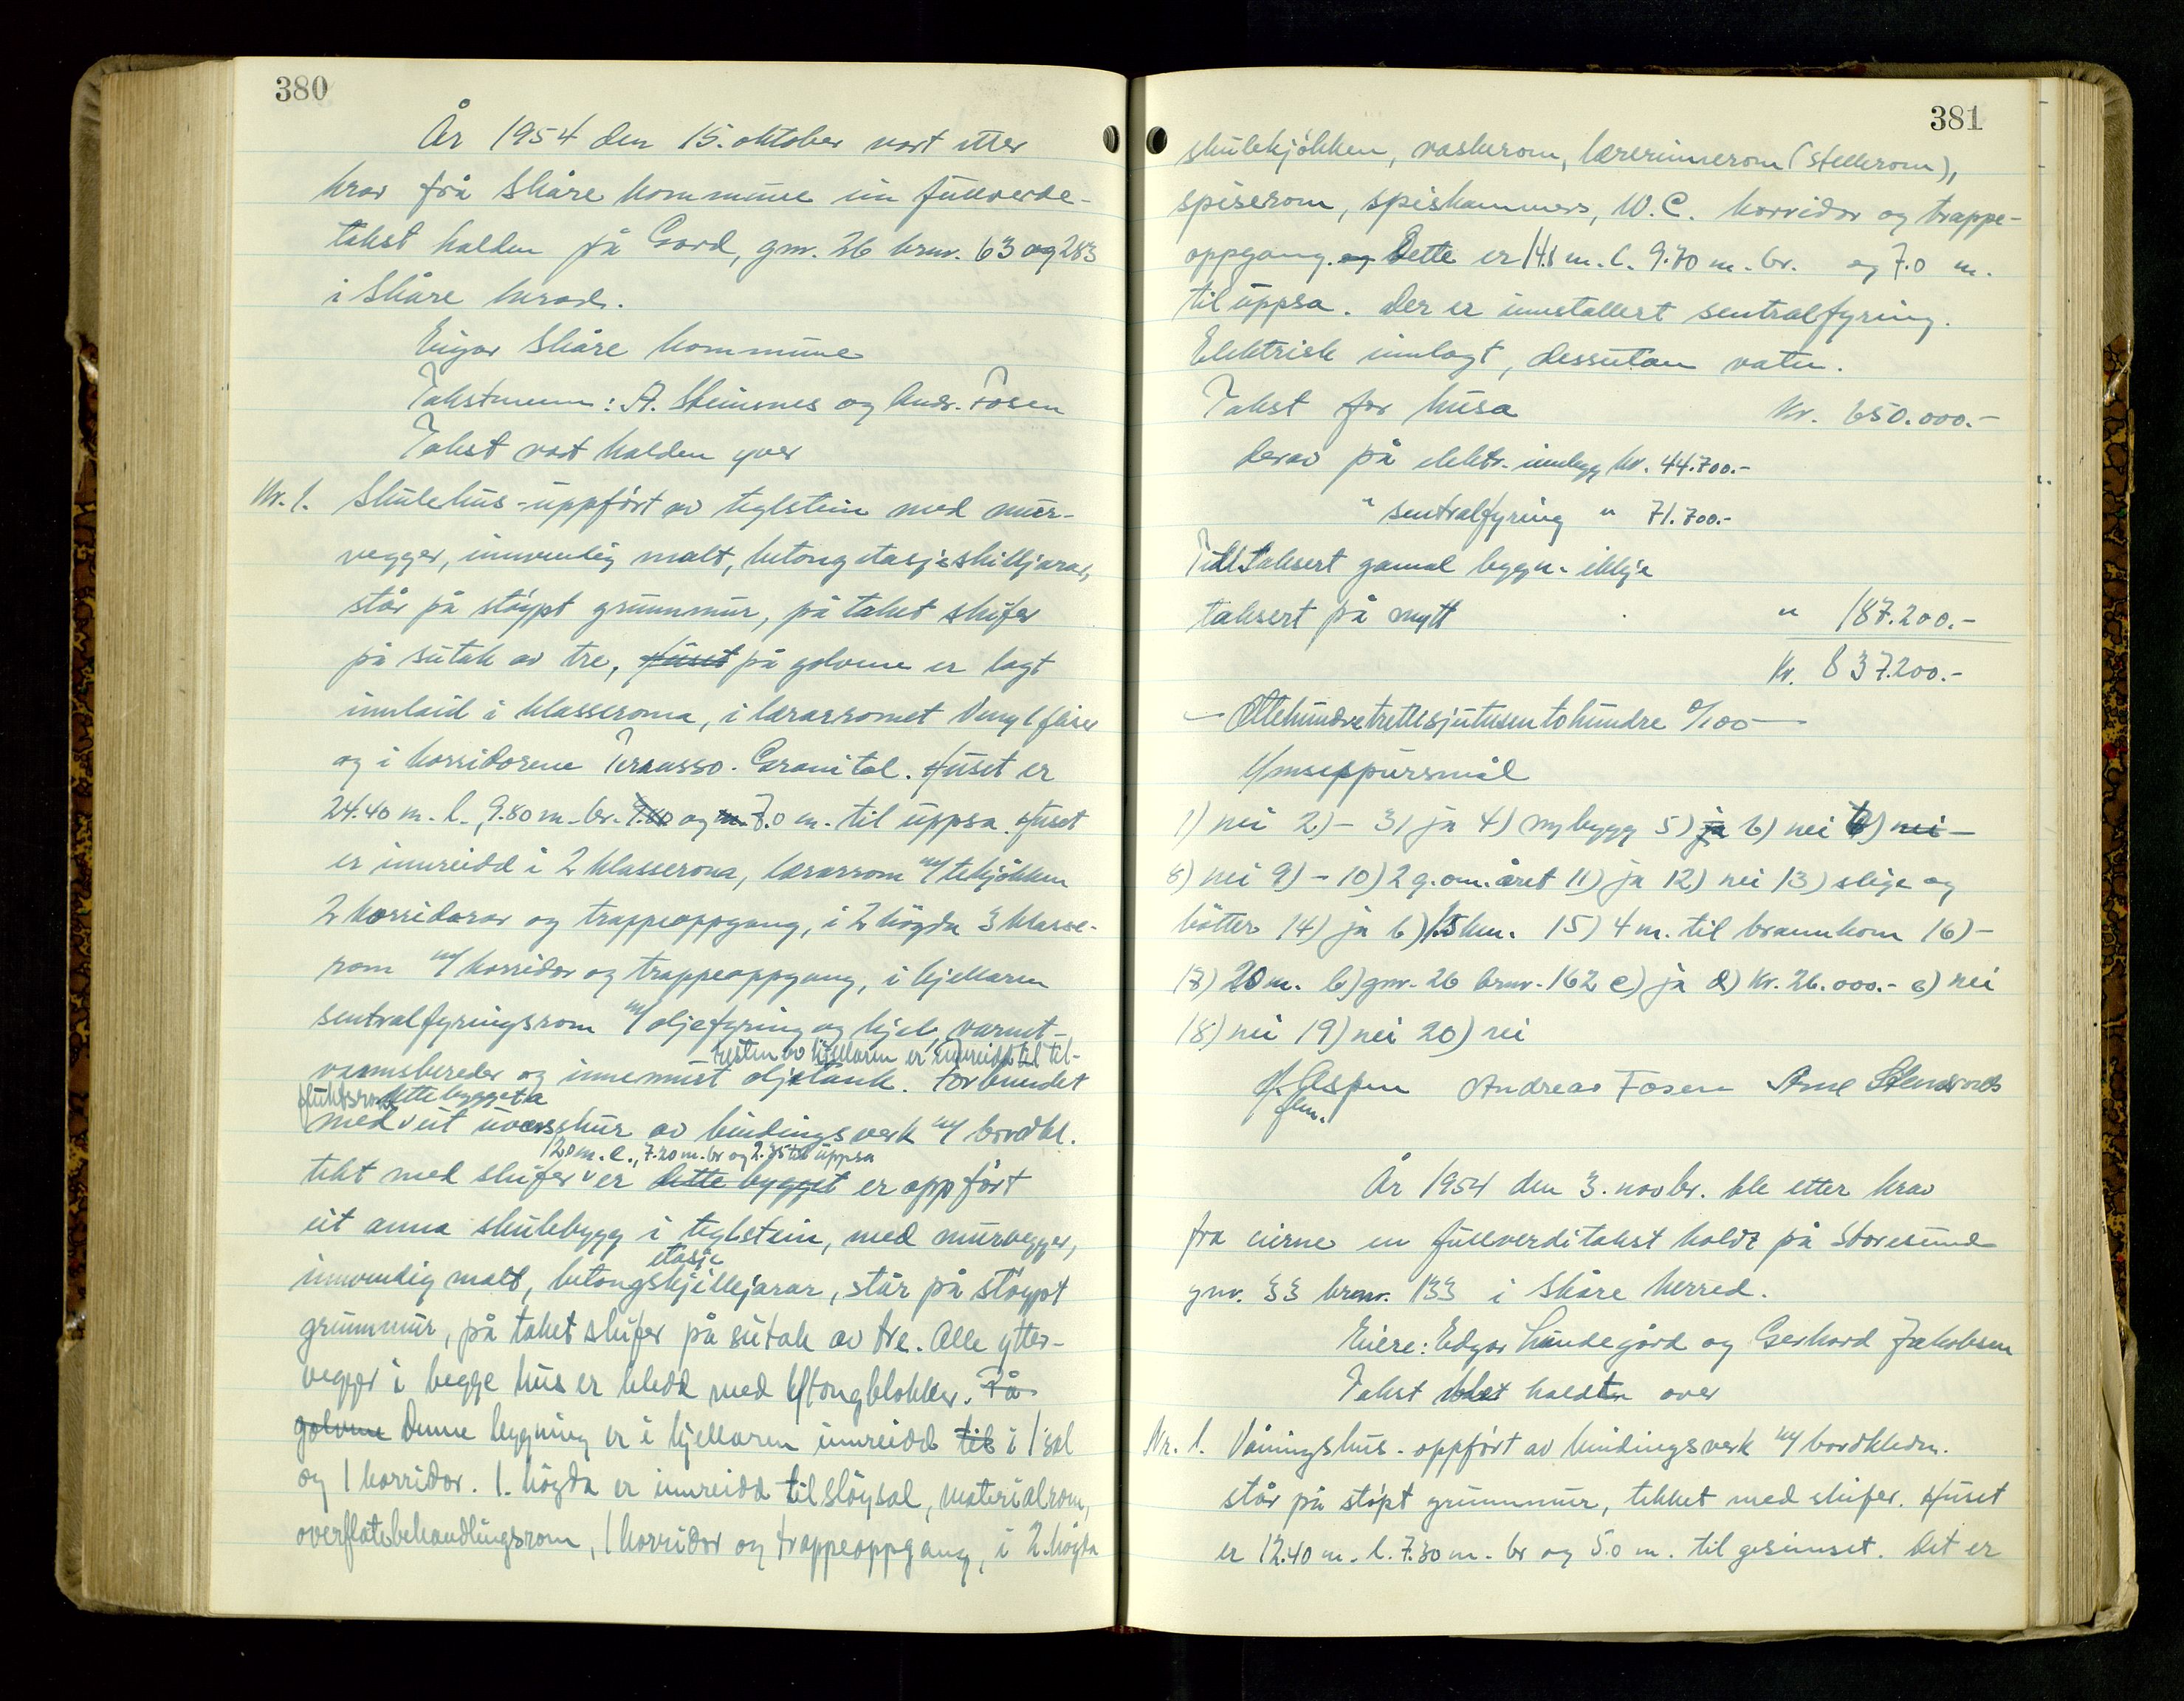 380
År 1954 den 15. oktober vart etter
krav frå Skåre kommune ein fullverde-
takst halden på Gard, gnr. 26 brnr. 63 og 283
i Skåre herad.
Eigar Skåre kommune
Takstmenn: A. Steinsnes og Andr. Fosen
Takst vart halden yver
Nr. 1. Skulehus - uppført av teglstein med mur-
vegger, innvendig malt, betong etasjeskilljarar,
står på støypt grunnmur, på taket skifer
på sutak av tre, Huset på golvene er lagt
innlaid i klasseroma, i lærarromet Venyl fliser
og i korridorene Terrasso. Granitol. Huset er
24.40 m. l., 9.80 m. br. 9.80 og m. 7.0 m. til uppsa. Huset
er innreidd i 2 klasseroma, lærarrom m/ tekjøkken
2 korridorar og trappeoppgang, i 2 høgda 3 klasse-
rom m/ korridor og trappeoppgang, i kjellaren
sentralfyringsrom m/ oljefyring og kjel, varmt-
– resten av kjellaren er innreidd til til-
vannsbereder og innemurt oljetank. Forbundet
fluktsrom dette bygget a
med eit uværsskur av bindingsverk m/ bordkl.
120 m. l., 7.20 m. br og 2.75 til uppsa
tekt med skifer er dette bygget er oppført
eit anna skulebygg i teglstein, med murvegger,
etasje
innvendig malt, betongskjilljarar, står på støypt
grunnmur, på taket skifer på sutak av tre. Alle ytter-
vegger i begge hus er kledd med Ytongblokker. På
golvene Denne bygning er i kjellaren innreidd til i 1 sal
og 1 korridor. 1. høgda er innreidd til sløysal, materialrom,
overflatebehandlingsrom, 1 korridor og trappeoppgang, i 2. høgda
381
skulekjøkken, vaskerom, lærerinnerom (stellerom),
spiserom, spiskammers, W.C. korridor og trappe-
oppgang. og Dette er 14.1 m. l. 9.70 m. br. og 7.0 m.
til uppsa. Der er innstallert sentralfyring.
Elektrisk innlagt, dessutan vatn.
Takst for husa Kr. 650.000.-
derav på elektr. innlegg kr. 44.700.-
" sentralfyring " 71.700.-
Tidl. taksert gamal bygn. ikkje
taksert på nytt " 187.200.-
Kr. 837.200.-
– Ottehundretrettisjutusentohundre 0/100 –
Ymsespursmål
1) nei 2) - 3) ja 4) nybygg 5) ja 6) nei 7) nei -
8) nei 9) - 10) 2 g. om. året 11) ja 12) nei 13) stige og
bøtter 14) ja b) 1.5 km. 15) 4 m. til brannkom 16) -
17) 20 m. b) gnr. 26 brnr. 162 c) ja d) Kr. 26.000.- e) nei
18) nei 19) nei 20) nei
J. Espen Andreas Fosen Arne Steinsnes
År 1954 den 3. novbr. ble etter krav
fra eierne en fullverditakst holdt på Storesund
gnr. 33 brnr. 133 i Skåre herred.
Eiere: Edgar Lundegård og Gerhard Jakobsen
Takst blet holdt over
Nr. 1. Våningshus. oppført av bindingsverk m/ bordkledn.
står på støpt grunnmur, tekket med skifer. Huset
er 12.40 m. l. 7.30 m. br og 5.0 m. til gesimset. Det er